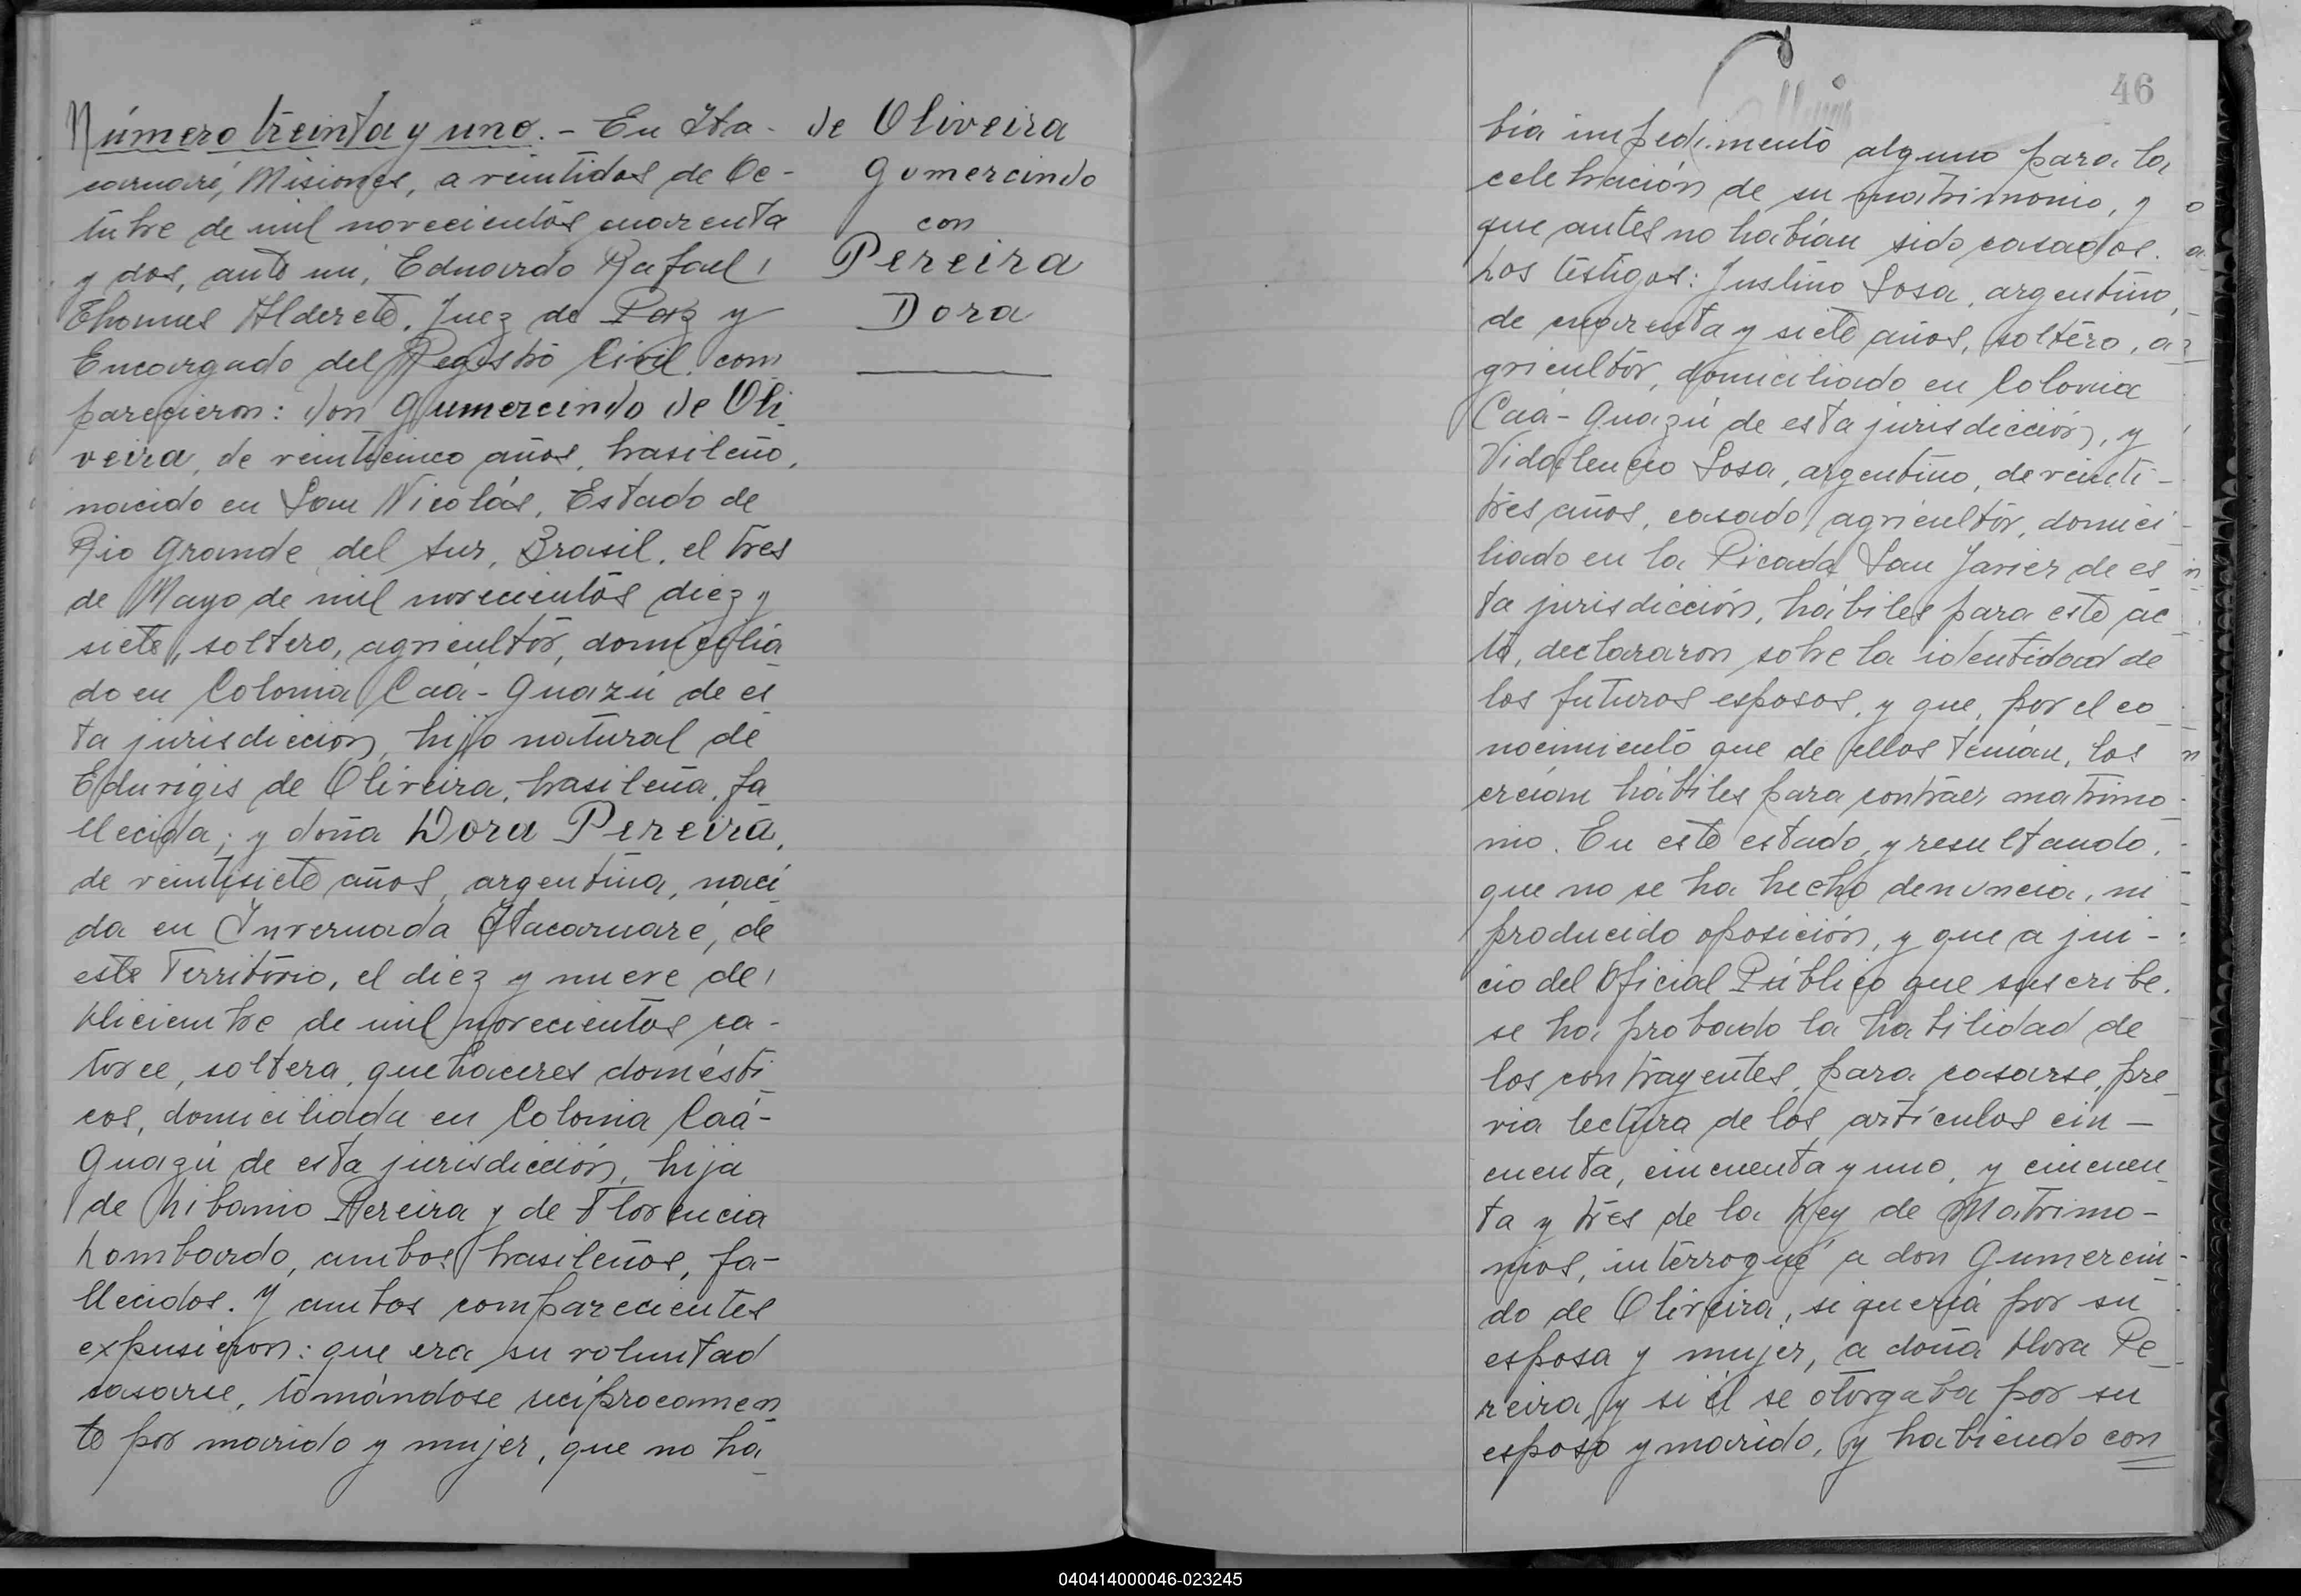 Número treinta y uno. - En Ita-
caruaré, Misiones, a veintidos de Oc-
tubre de mil novecientos cuarenta
y dos, ante mí, Eduardo Rafael
Thomas Alderete, Juez de Paz y
Encargado del Registro Civil, com
parecieron: don Gumercindo de Oli
veira, de veinticinco años, brasileño,
nacido en San Nicolás, Estado de
Rio Grande del Sur, Brasil, el tres
de Mayo de mil novecientos diez y
siete, soltero, agricultor, domicilia
do en Colonia Caá-Guazú de es
ta jurisdicción, hijo natural de
Eduvigis de Oliveira, brasileña, fa
llecida; y doña Dora Pereira,
de veintisiete años, argentina, naci
da en Invernada Itacaruaré, de
este Territorio, el diez y nueve de
Diciembre de mil novecientos ca-
torce, soltera, quehaceres domésti
cos, domiciliada en Colonia Caá-
Guazú de esta jurisdicción, hija
de Libanio Pereira y de Florencia
Lombardo, ambos brasileños, fa-
llecidos. Y ambos comparecientes
expusieron: que era su voluntad
casarse, tomándose recíprocamen
te por marido y mujer, que no ha
de Oliveira
Gumercindo
con
Pereira
Dora
46
bía impedimento alguno para la
celebración de su matrimonio, y
que antes no habían sido casados.
Los testigos: Justino Sosa, argentino,
de cuarenta y siete años, soltero, a
gricultor, domiciliado en Colonia
Caá-Guazú de esta jurisdicción, y
Vidalencio Sosa, argentino, de veinti-
trés años, casado, agricultor, domici
liado en la Picada San Javier de es
ta jurisdicción, hábiles para este ac
to, declararon sobre la identidad de
los futuros esposos, y que, por el co
nocimiento que de ellos tenían, los
creían hábiles para contraer matrimo
nio. En este estado, y resultando,
que no se ha hecho denuncia, ni
producido oposición, y que a jui-
cio del Oficial Público que suscribe,
se ha probado la habilidad de
los contrayentes, para casarse, pre
via lectura de los artículos cin-
cuenta, cincuenta y uno, y cincuen
ta y tres de la Ley de Matrimo-
nios, interrogué a don Gumercin-
do de Oliveira, si quería por su
esposa y mujer, a doña Dora Pe
reira y si él se otorgaba por su
esposo y marido, y habiendo con
040414000046-023245